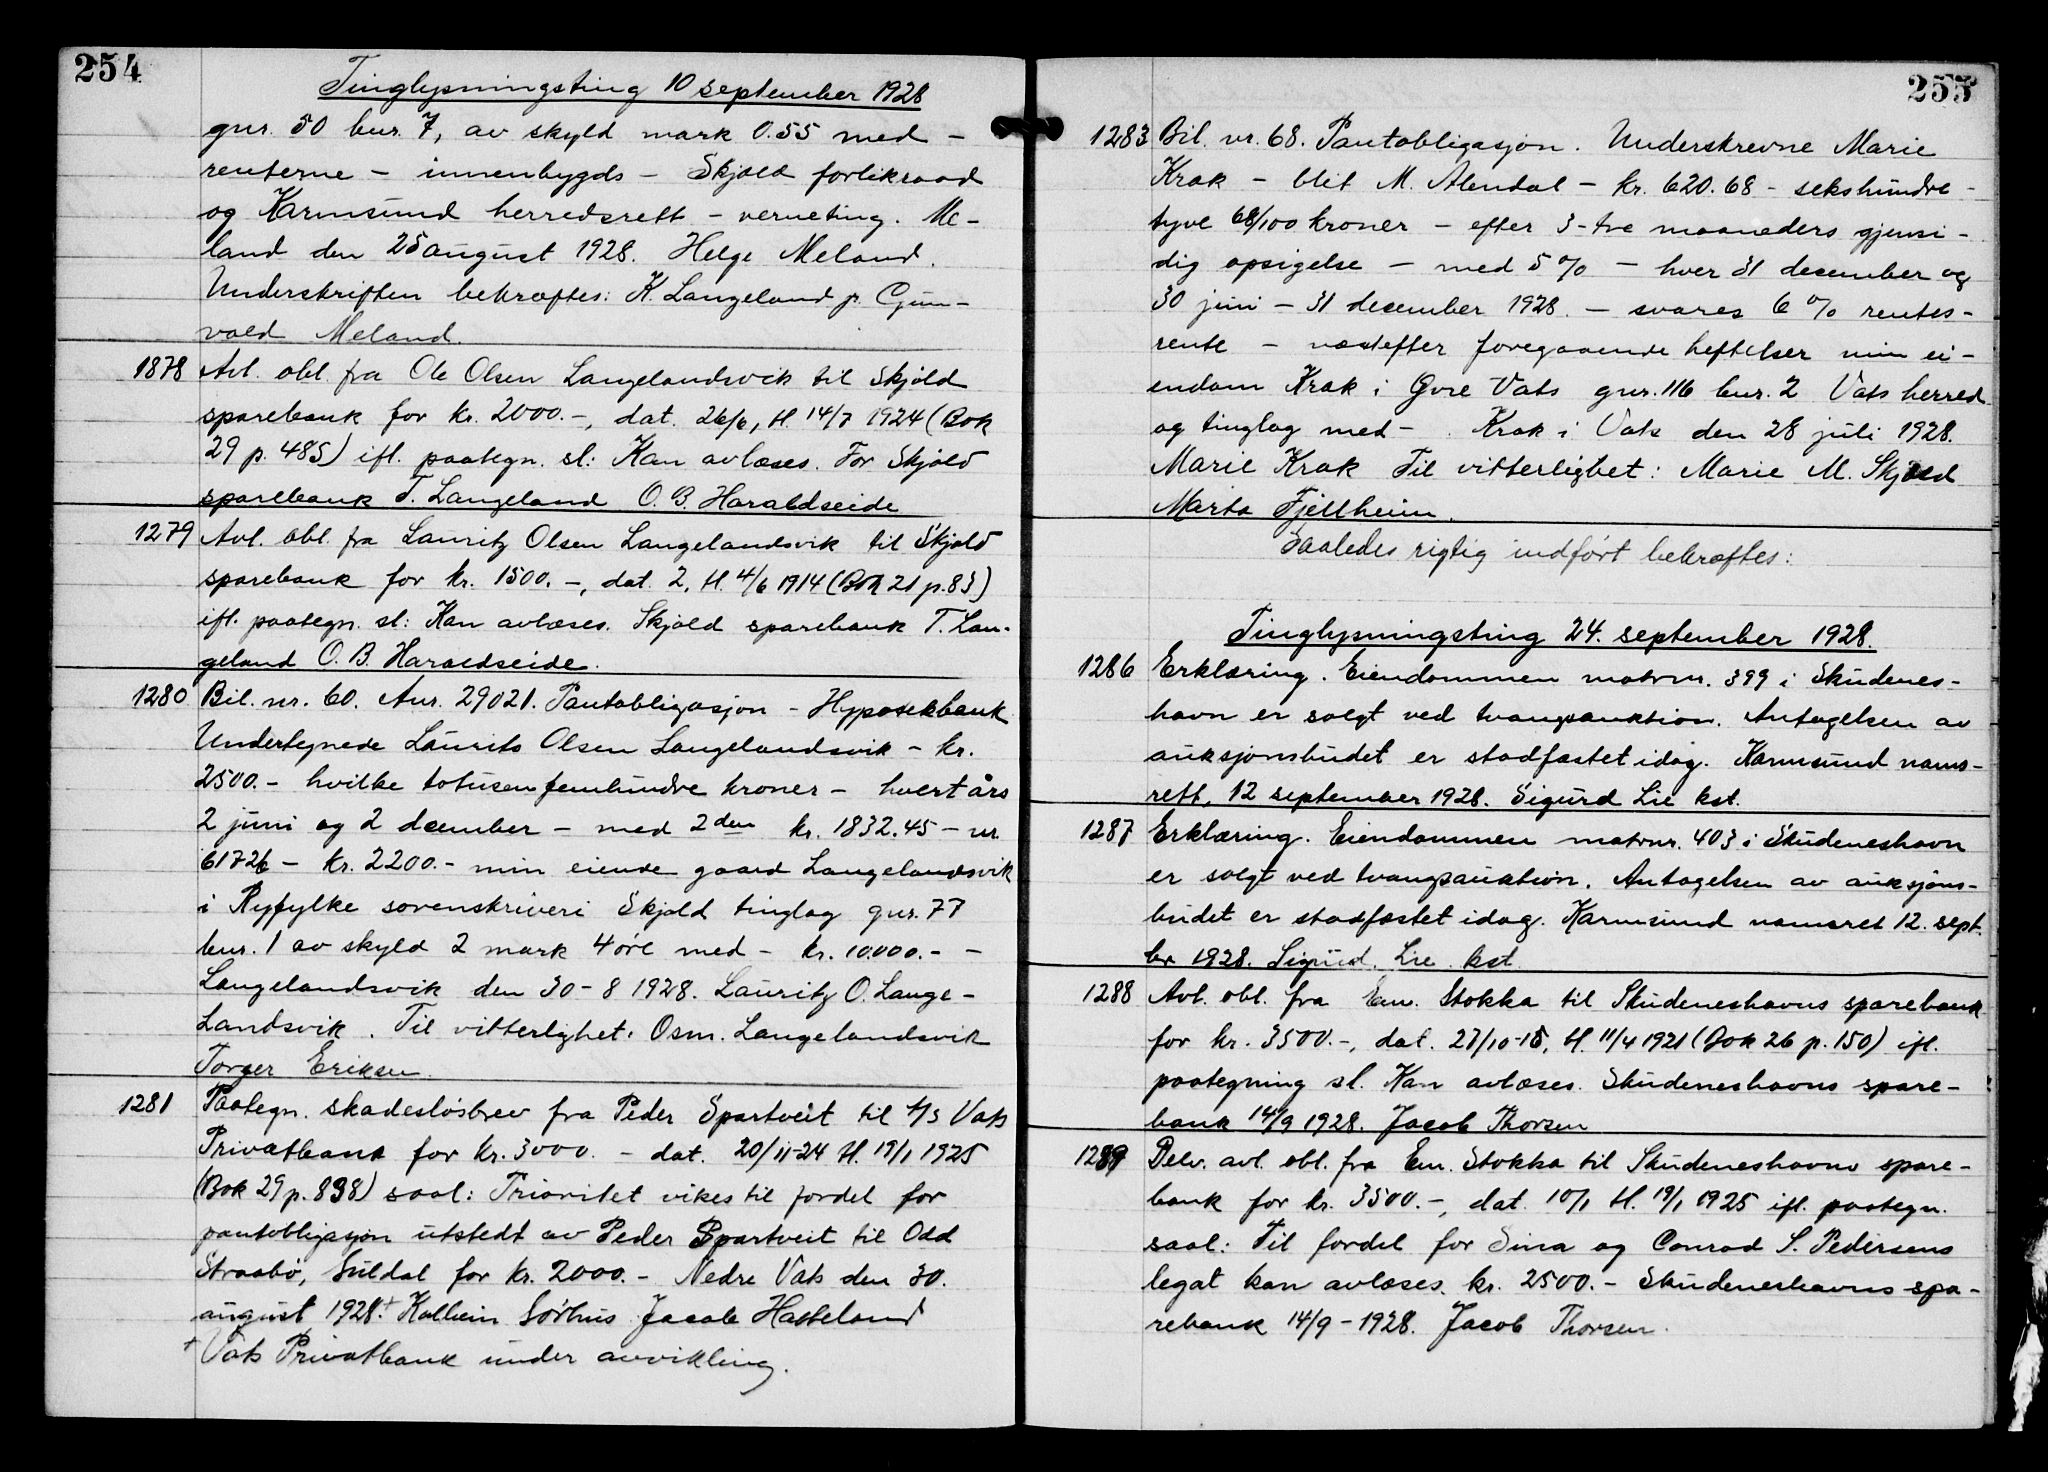 254
Tinglysningsting 10 september 1928
gnr. 50 bnr. 7, av skyld mark 0.55 med -
renterne - innenbygds - Skjold forliksraad
og Karmsund herredsrett - verneting. Me-
land den 25 august 1928. Helge Meland.
Underskriften bekræftes: K. Langeland p. Gun-
vald Meland.
1878 Avl. obl. fra Ole Olsen Langelandsvik til Skjold
sparebank for kr. 2000.-, dat. 26/6, tl. 14/7 1924 (Bok
29 p. 485) ifl. paategn. sl: Kan avlæses. For Skjold
sparebank T. Langeland O. B. Haraldseide
1279 Avl. obl. fra Lauritz Olsen Langelandsvik til Skjold
sparebank for kr. 1500.-, dat. 2, tl. 4/6 1914 (Bok 21 p. 83)
ifl. paategn. sl: Kan avlæses. Skjold sparebank T. Lan-
geland O. B. Haraldseide.
1280 Bil. nr. 60. Anr. 29021. Pantobligasjon - Hypotekbank
Undertegnede Laurits Olsen Langelandsvik - kr.
2500.- hvilke totusenfemhundre kroner - hvert års
2 juni og 2 december - med 2den kr. 1832.45 - nr.
61726 - kr. 2200.- min eiende gaard Langelandsvik
i Ryfylke sorenskriveri Skjold tinglag gnr. 77
bnr. 1 av skyld 2 mark 4 øre med - kr. 10.000.- -
Langelandsvik den 30-8 1928. Lauritz O. Lange-
landsvik. Til vitterlighet: Osm. Langelandsvik
Torger Eriksen.
1281 Paategn. skadesløsbrev fra Peder Spartveit til A/S Vats
Privatbank for kr. 3000.- dat. 20/11-24 tl. 19/1 1925
(Bok 29 p. 898) saal: Prioritet vikes til fordel for
pantobligasjon utstedt av Peder Spartveit til Odd
Straabø, Suldal for kr. 2000.- Nedre Vats den 30.
august 1928.+ Kolbein Sørhus Jacob Hatteland
+ Vats Privatbank under avvikling.
255
1283 Bil. nr. 68. Pantobligasjon. Underskrevne Marie
Krak - blit M. Alendal - kr. 620.68 - sekshundre-
tyve 68/100 kroner - efter 3-tre maaneders gjensi-
dig opsigelse - med 5% - hver 31 december og
30 juni - 31 december 1928. - svares 6% rentes-
rente - næstefter foregaaende heftelser min ei-
endom Krak i Øvre Vats gnr. 116 bnr. 2 Vats herred
og tinglag med - . Krak i Vats den 28 juli 1928.
Marie Krak Til vitterlighet: Marie M. Skjold
Marta Fjellheim.
Saaledes rigtig indført bekræftes:
Tinglysningsting 24. september 1928.
1286 Erklæring. Eiendommen matrnr. 399 i Skudenes-
havn er solgt ved tvangsauktion. Antagelsen av
auksjonsbudet er stadfæstet idag. Karmsund nams-
rett, 12 september 1928. Sigurd Lie kst.
1287 Erklæring. Eiendommen matrnr. 403 i Skudeneshavn
er solgt ved tvangsauktion. Antagelsen av auksjons-
budet er stadfæstet idag. Karmsund namsret 12. sept.
br 1928. Sigurd. Lie. kst.
1288 Avl. obl. fra Em. Stokka til Skudeneshavns sparebank
for kr. 3500.-, dat. 27/10-15, tl. 11/4 1921 (Bok 26 p. 150) ifl.
paategning sl. Kan avlæses. Skudeneshavns spare-
bank 14/9 1928. Jacob Thorsen
1289 Delv. avl. obl. fra Em. Stokka til Skudeneshavns spare-
bank for kr. 3500.-, dat. 10/1 tl. 19/1 1925 ifl. paategn.
saal: Til fordel for Sina og Conrad S. Pedersens
legat kan avlæses. kr. 2500.- Skudeneshavns spa-
rebank 14/9 - 1928. Jacob Thorsen.